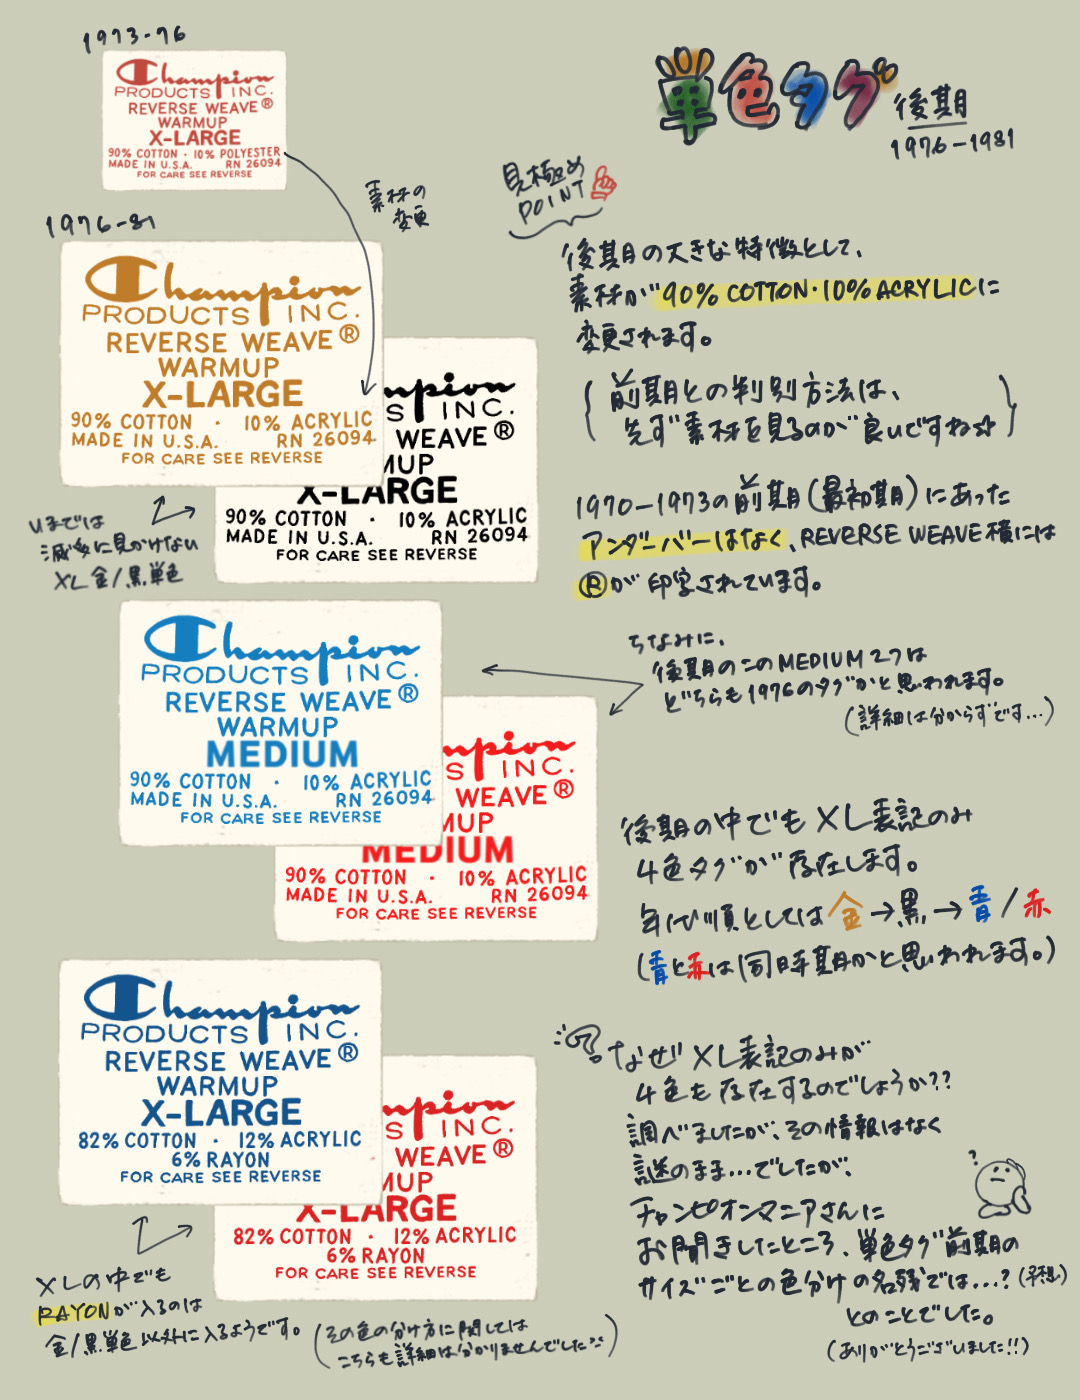 1973-76
Champion
PRODUCTS INC.
REVERSE WEAVE®
WARMUP
X-LARGE
90% COTTON · 10% POLYESTER
MADE IN U.S.A. RN 26094
FOR CARE SEE REVERSE
素材の
変更
単色タグ
後期
1976-1981
見極め
POINT
後期の大きな特徴として、
素材が90% COTTON・10% ACRYLICに
変更されます。
(前期との判別方法は、
先ず素材を見るのが良いですね☆)
1970-1973の前期(最初期)にあった
アンダーバーはなく、REVERSE WEAVE横には
®が印字されています。
1976-81
Champion
PRODUCTS INC.
REVERSE WEAVE®
WARMUP
X-LARGE
90% COTTON · 10% ACRYLIC
MADE IN U.S.A. RN 26094
FOR CARE SEE REVERSE
mpion
S INC.
WEAVE®
MUP
X-LARGE
90% COTTON · 10% ACRYLIC
MADE IN U.S.A. RN 26094
FOR CARE SEE REVERSE
いまでは
滅多に見かけない
XL 金/黒単色
Champion
PRODUCTS INC.
REVERSE WEAVE®
WARMUP
MEDIUM
90% COTTON · 10% ACRYLIC
MADE IN U.S.A. RN 26094
FOR CARE SEE REVERSE
mpion
S INC.
WEAVE®
MUP
MEDIUM
90% COTTON · 10% ACRYLIC
MADE IN U.S.A. RN 26094
FOR CARE SEE REVERSE
ちなみに、
後期のこのMEDIUM 2つは
どちらも1976のタグかと思われます。
(詳細は分からずです…)
後期の中でもXL表記のみ
4色タグが存在します。
年代順としては金→黒→青/赤
(青と赤は同時期かと思われます。)
Champion
PRODUCTS INC.
REVERSE WEAVE®
WARMUP
X-LARGE
82% COTTON · 12% ACRYLIC
6% RAYON
FOR CARE SEE REVERSE
mpion
S INC.
WEAVE®
MUP
X-LARGE
82% COTTON · 12% ACRYLIC
6% RAYON
FOR CARE SEE REVERSE
XLの中でも
RAYONが入るのは
金/黒単色以外に入るようです。
(その色の分け方に関しては
こちらも詳細は分かりませんでした)
なぜXL表記のみが
4色も存在するのでしょうか??
調べましたが、その情報はなく
謎のまま…でしたが、
チャンピオンマニアさんに
お聞きしたところ、単色タグ前期の
サイズごとの色分けの名残では…?(予想)
とのことでした。
(ありがとうございました!!)
?